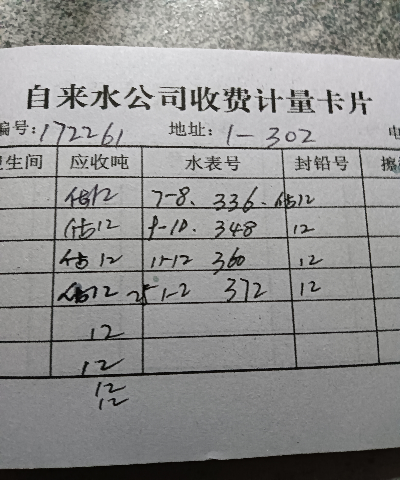 自来水公司收费计量卡片
编号:172261 地址: 1-302 电
卫生间 应收吨 水表号 封铅号
估12 7-8. 336. 估12
估12 9-10. 348 12
估12 11-12 360 12
估12 25 1-2 372 12
12
12
12
12